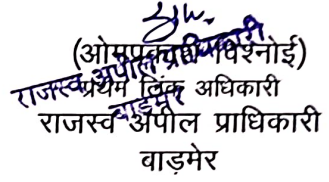 (ओमप्रकाश विश्नोई)
प्रथम लिंक अधिकारी
राजस्व अपील प्राधिकारी
बाड़मेर
राजस्व अपील प्राधिकारी
बाड़मेर